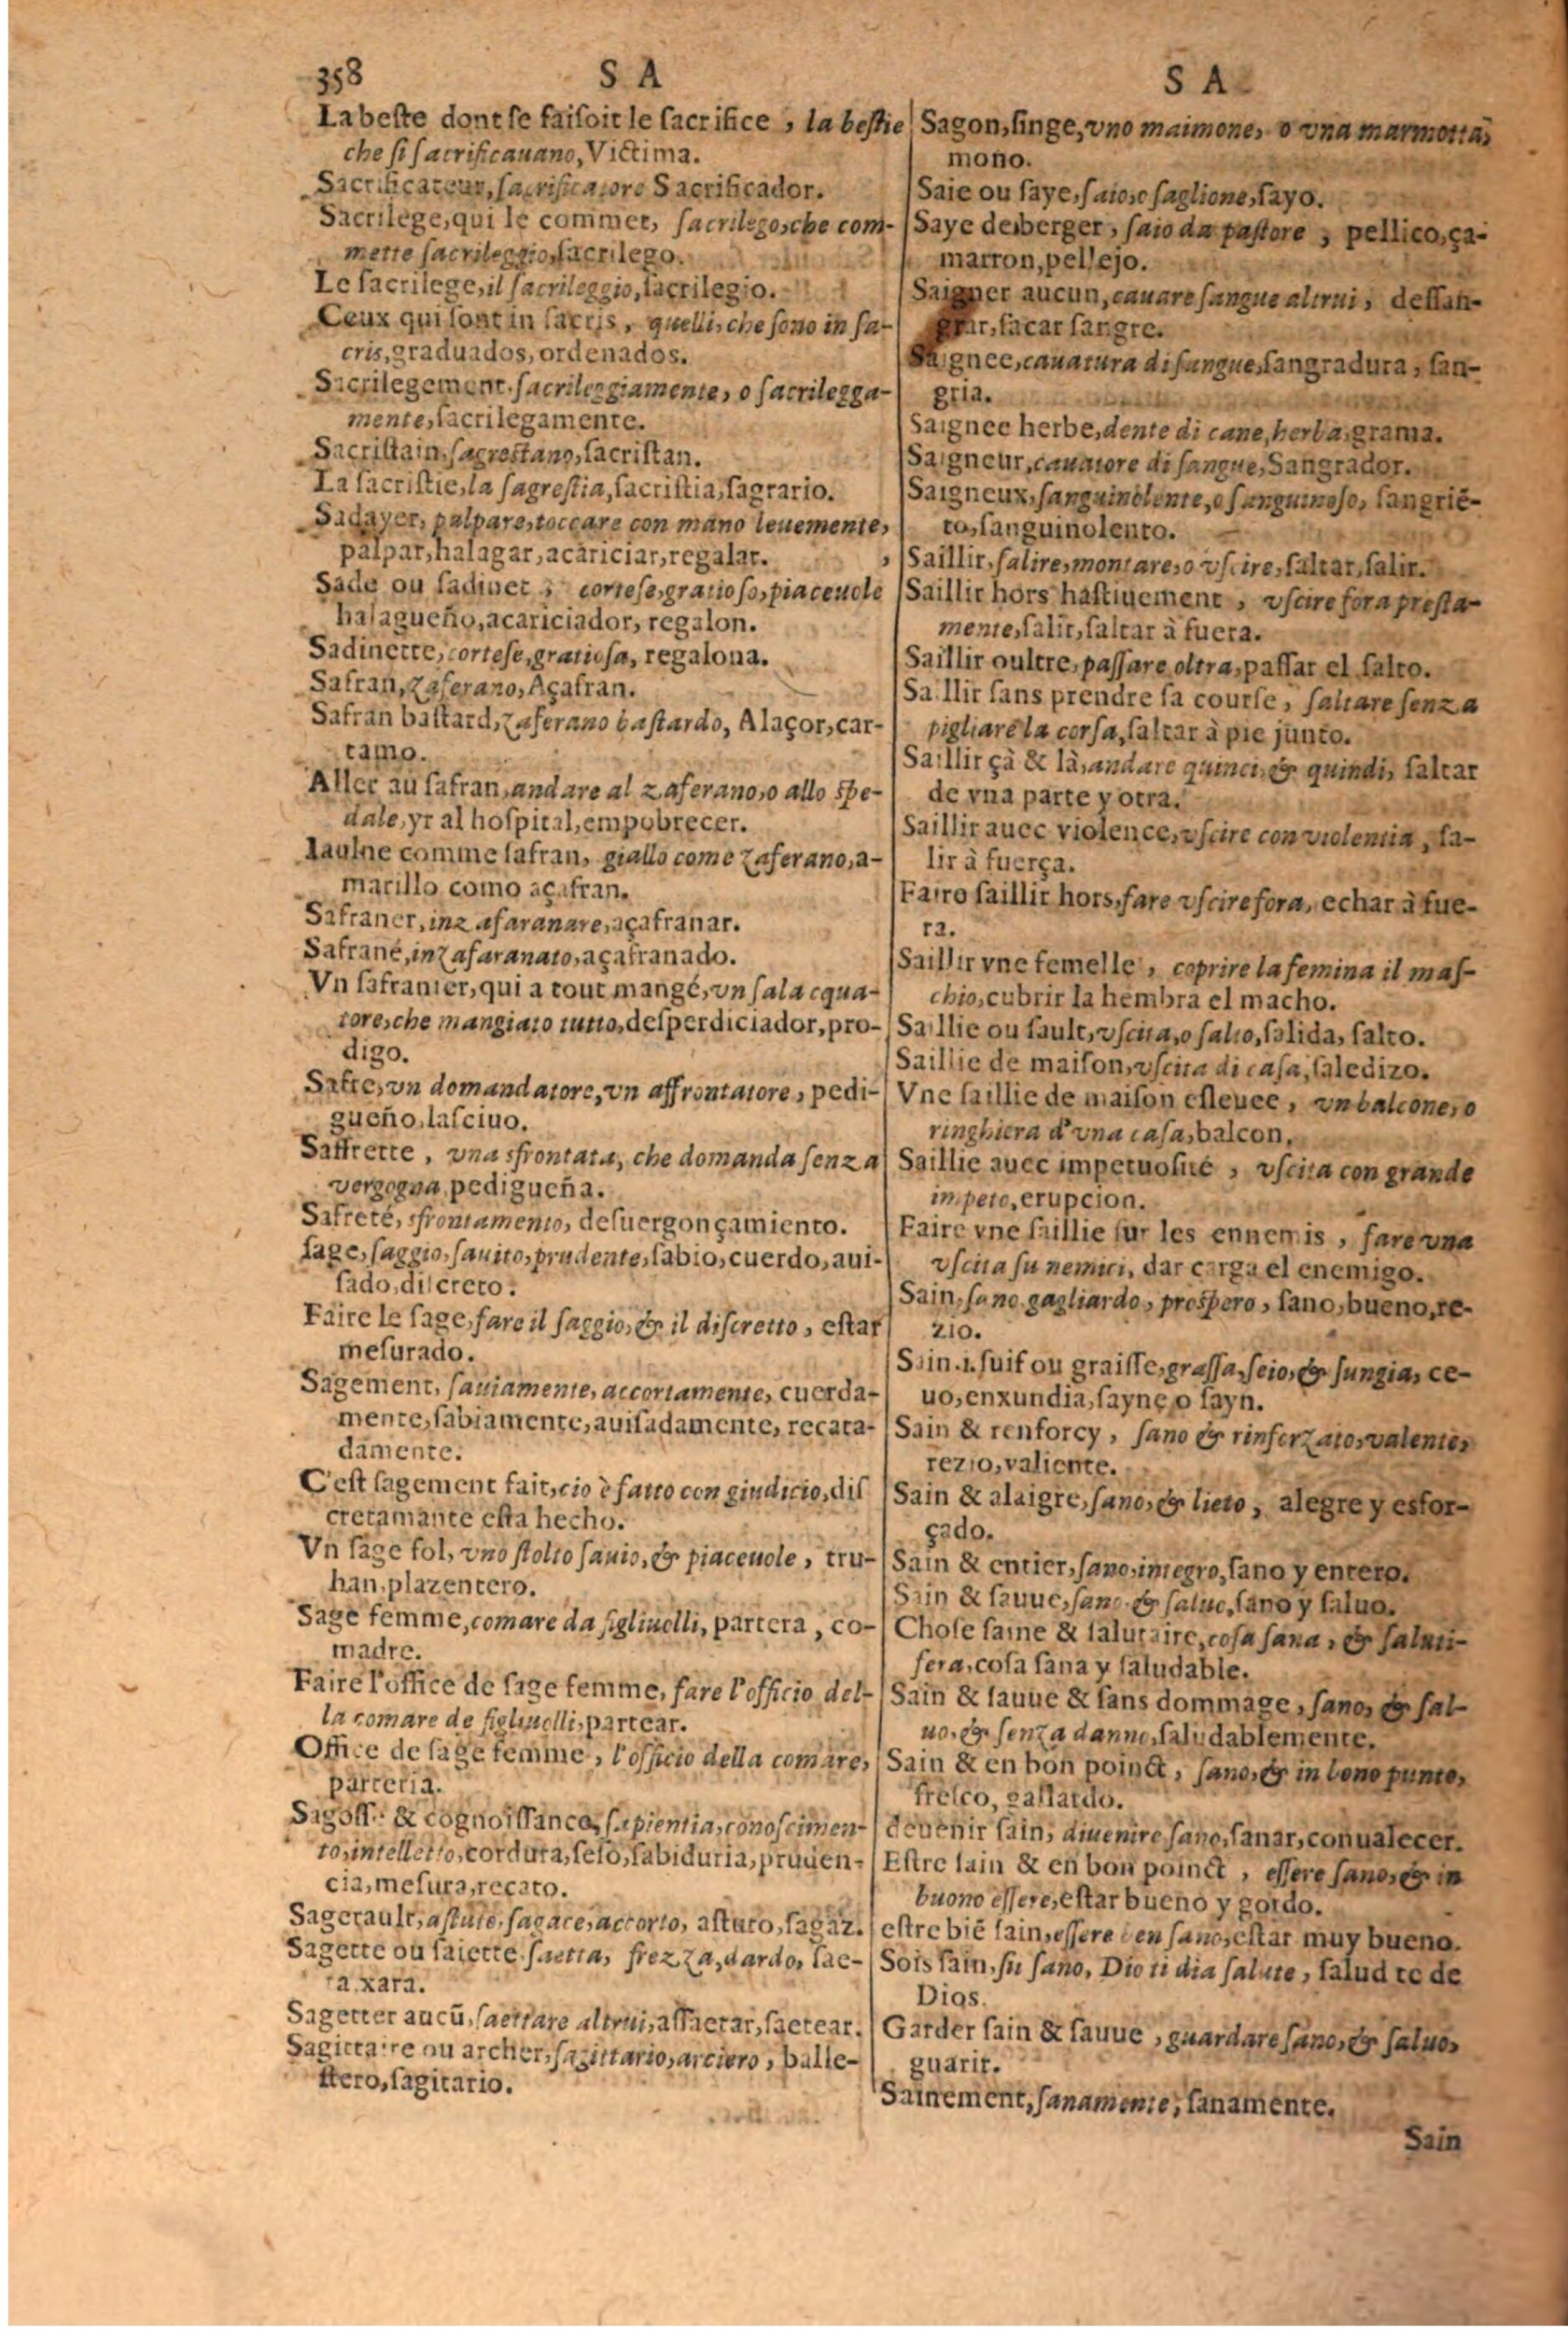 358 S A
La beste dont se faisoit le sacrifice, la bestie
che si sacrificauano, Victima.
Sacrificateur, sacrificatore Sacrificador.
Sacrilege, qui le commet, sacrilego, che com-
mette sacrileggio, sacrilego.
Le sacrilege, il sacrileggio, sacrilegio.
Ceux qui sont in sacris, quelli, che sono in sa-
cris, graduados, ordenados.
Sacrilegement, sacrileggiamente, o sacrilegga-
mente, sacrilegamente.
Sacristain, sagrestano, sacristan.
La sacristie, la sagrestia, sacristia, sagrario.
Sadayer, palpare, toccare con mano leuemente,
palpar, halagar, acariciar, regalar.
Sade ou sadinet, cortese, gratioso, piaceuole
halagueño, acariciador, regalon.
Sadinette, cortese, gratiosa, regalona.
Safran, zaferano, Açafran.
Safran bastard, zaferano bastardo, Alaçor, car-
tamo.
Aller au safran, andare al zaferano, o allo spe-
dale, yr al hospital, empobrecer.
Iaulne comme safran, giallo come zaferano, a-
marillo como açafran.
Safraner, inzafaranare, açafranar.
Safrané, inzafaranato, açafranado.
Vn safranier, qui a tout mangé, vn salacqua-
tore, che mangiato tutto, desperdiciador, pro-
digo.
Safre, vn domandatore, vn affrontatore, pedi-
gueño, lasciuo.
Saffrette, vna sfrontata, che domanda senza
vergogna, pedigueña.
Safreté, sfrontamento, desuergonçamiento.
sage, saggio, sauito, prudente, sabio, cuerdo, aui-
sado, discreto.
Faire le sage, fare il saggio, & il discretto, estar
mesurado.
Sagement, sauiamente, accortamente, cuerda-
mente, sabiamente, auisadamente, recata-
damente.
C'est sagement fait, cio è fatto con giudicio, dis
cretamante esta hecho.
Vn sage fol, vno stolto sauio, & piaceuole, tru-
han, plazentero.
Sage femme, comare da figliuolli, partera, co-
madre.
Faire l'office de sage femme, fare l'officio del-
la comare de figliuolli, partear.
Office de sage femme, l'officio della comare,
parteria.
& cognoissance, sapientia, conoscimen-
to, intelletto, cordura, seso, sabiduria, pruden-
cia, mesura, recato.
Sagerault, astuto, sagace, accorto, astuto, sagaz.
Sagette ou saiette, saetta, frezza, dardo, sae-
ta, xara.
Sagetter aucū, saettare altrui, assaetar, saetear.
Sagittaire ou archer, sagittario, arciero, balle-
stero, sagitario.
S A
Sagon, singe, vno maimone, o vna marmotta,
mono.
Saie ou saye, saio, o saglione, sayo.
Saye de berger, saio da pastore, pellico, ça-
marron, pellejo.
Saigner aucun, cauare sangue altrui, dessan-
grar, sacar sangre.
Saignee, cauatura di sangue, sangradura, san-
gria.
Saignee herbe, dente di cane, herba, grama.
Saigneur, cauatore di sangue, Sangrador.
Saigneux, sanguinolente, o sanguinoso, sangriē-
to, sanguinolento.
Saillir, salire, montare, o vscire, saltar, salir.
Saillir hors hastiuement, vscire fora presta-
mente, salir, saltar à fuera.
Saillir oultre, passare oltra, passar el salto.
Saillir sans prendre sa course, saltare senza
pigliare la corsa, saltar à pie junto.
Saillir çà & là, andare quinci, & quindi, saltar
de vna parte y otra.
Saillir auec violence, vscire con violentia, sa-
lir à fuerça.
Fairo saillir hors, fare vscire fora, echar à fue-
ra.
Saillir vne femelle, coprire la femina il mas-
chio, cubrir la hembra el macho.
Saillie ou sault, vscita, o salto, salida, salto.
Saillie de maison, vscita di casa, saledizo.
Vne saillie de maison esleuee, vn balcone, o
ringhiera d'vna casa, balcon,
Saillie auec impetuosité, vscita con grande
impeto, erupcion.
Faire vne saillie sur les ennemis, fare vna
vscita su nemici, dar carga el enemigo.
Sain, sano gagliardo, prospero, sano, bueno, re-
zio.
Sain .i. suif ou graisse, grassa, seio, & sungia, ce-
uo, enxundia, sayne o sayn.
Sain & renforcy, sano & rinforzato, valente,
rezio, valiente.
Sain & alaigre, sano, & lieto, alegre y esfor-
çado.
Sain & entier, sano, integro, sano y entero.
Sain & sauue, sano & saluo, sano y saluo.
Chose saine & salutaire, cosa sana, & saluti-
fera, cosa sana y saludable.
Sain & sauue & sans dommage, sano, & sal-
uo, & senza danno, saludablemente.
Sain & en bon poinct, sano, & in bono punto,
fresco, gallardo.
deuenir sain, diuenire sano, sanar, conualecer.
Estre sain & en bon poinct, essere sano, & in
buono essere, estar bueno y gordo.
estre biē sain, essere ben sano, estar muy bueno.
Sois sain, sii sano, Dio ti dia salute, salud te de
Dios.
Garder sain & sauue, guardare sano, & saluo,
guarir.
Sainement, sanamente, sanamente.
Sain